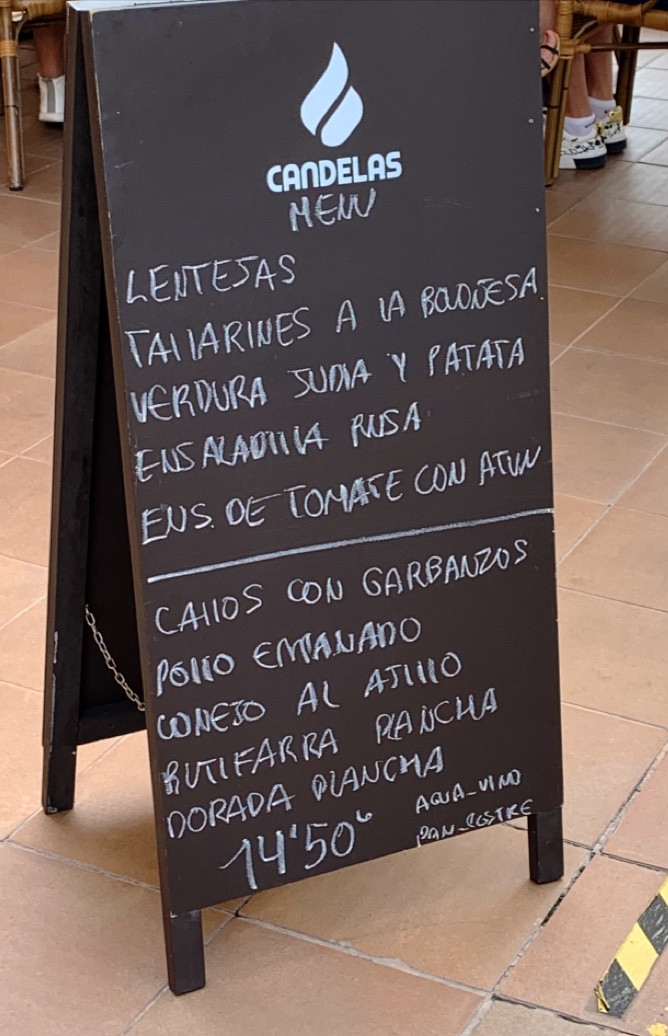 CANDELAS
MENU
LENTEJAS
TALLARINES A LA BOLONESA
VERDURA JUDIA Y PATATA
ENSALADILLA RUSA
ENS. DE TOMATE CON ATUN
CALLOS CON GARBANZOS
POLLO EMPANADO
CONEJO AL AJILLO
BUTIFARRA PLANCHA
DORADA PLANCHA
14'50€ AGUA-VINO
PAN-POSTRE